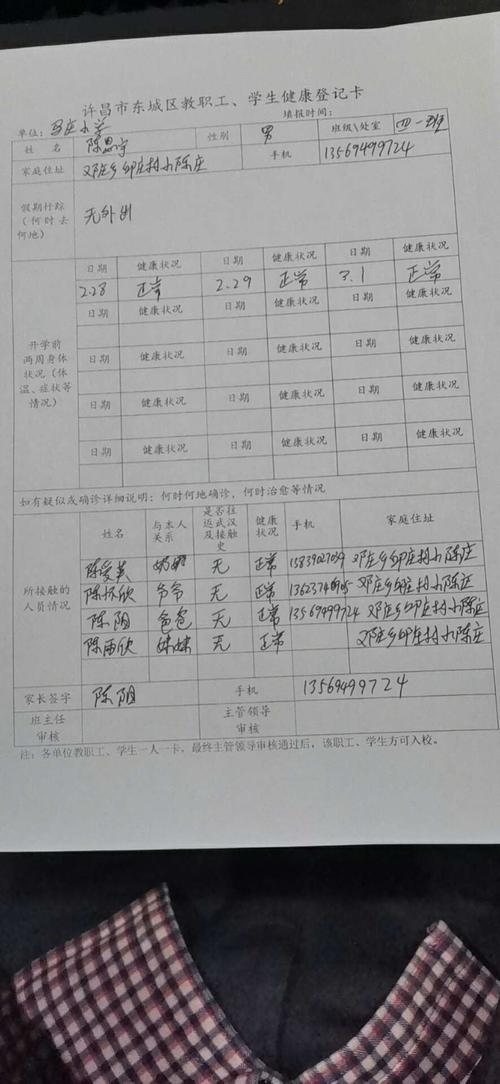 许昌市东城区教职工、学生健康登记卡
单位：马庄小学 填报时间：
姓名 陈 宇 性别 男 班级\处室 四一班
手机 13569499724
家庭住址 邓庄乡邱庄村小陈庄
假期行踪（何时去何地） 无外出
开学前两周身体状况（体温、症状等情况）
日期 健康状况 日期 健康状况 日期 健康状况
2.28 正常 2.29 正常 3.1 正常
日期 健康状况 日期 健康状况 日期 健康状况
日期 健康状况 日期 健康状况 日期 健康状况
日期 健康状况 日期 健康状况 日期 健康状况
日期 健康状况 日期 健康状况 日期 健康状况
如有疑似或确诊详细说明：何时何地确诊，何时治愈等情况
所接触的人员情况
姓名 与本人关系 是否往返武汉及接触史 健康状况 手机 家庭住址
陈爱英 奶奶 无 正常 邓庄乡邱庄村小陈庄
陈 欣 爷爷 无 正常 邓庄乡邱庄村小陈庄
陈阳 爸爸 无 正常 13569499724 邓庄乡邱庄村小陈庄
陈雨欣 妹妹 无 正常 邓庄乡邱庄村小陈庄
家长签字 陈阳 手机 13569499724
班主任审核 主管领导审核
注：各单位教职工、学生一人一卡，最终主管领导审核通过后，该职工、学生方可入校。